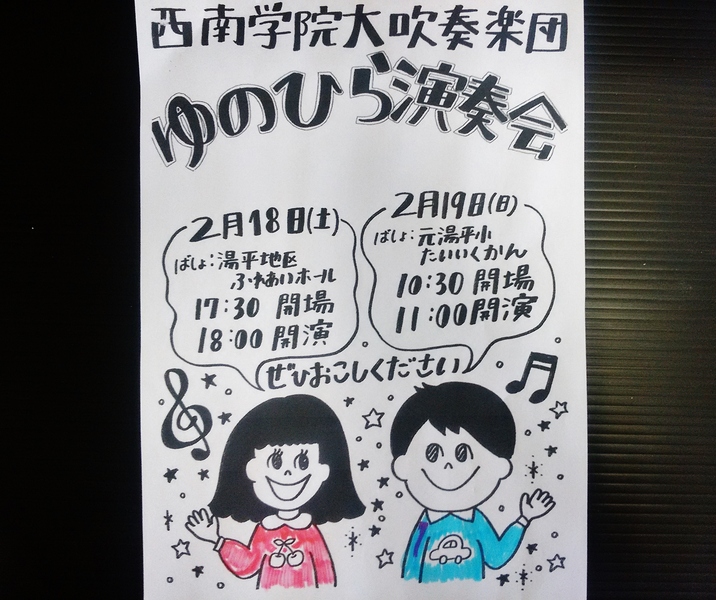 西南学院大吹奏楽団
ゆのひら演奏会
2月18日(土)
ばしょ:湯平地区
ふれあいホール
17:30 開場
18:00 開演
2月19日(日)
ばしょ:元湯平小
たいいくかん
10:30 開場
11:00 開演
ぜひおこしください